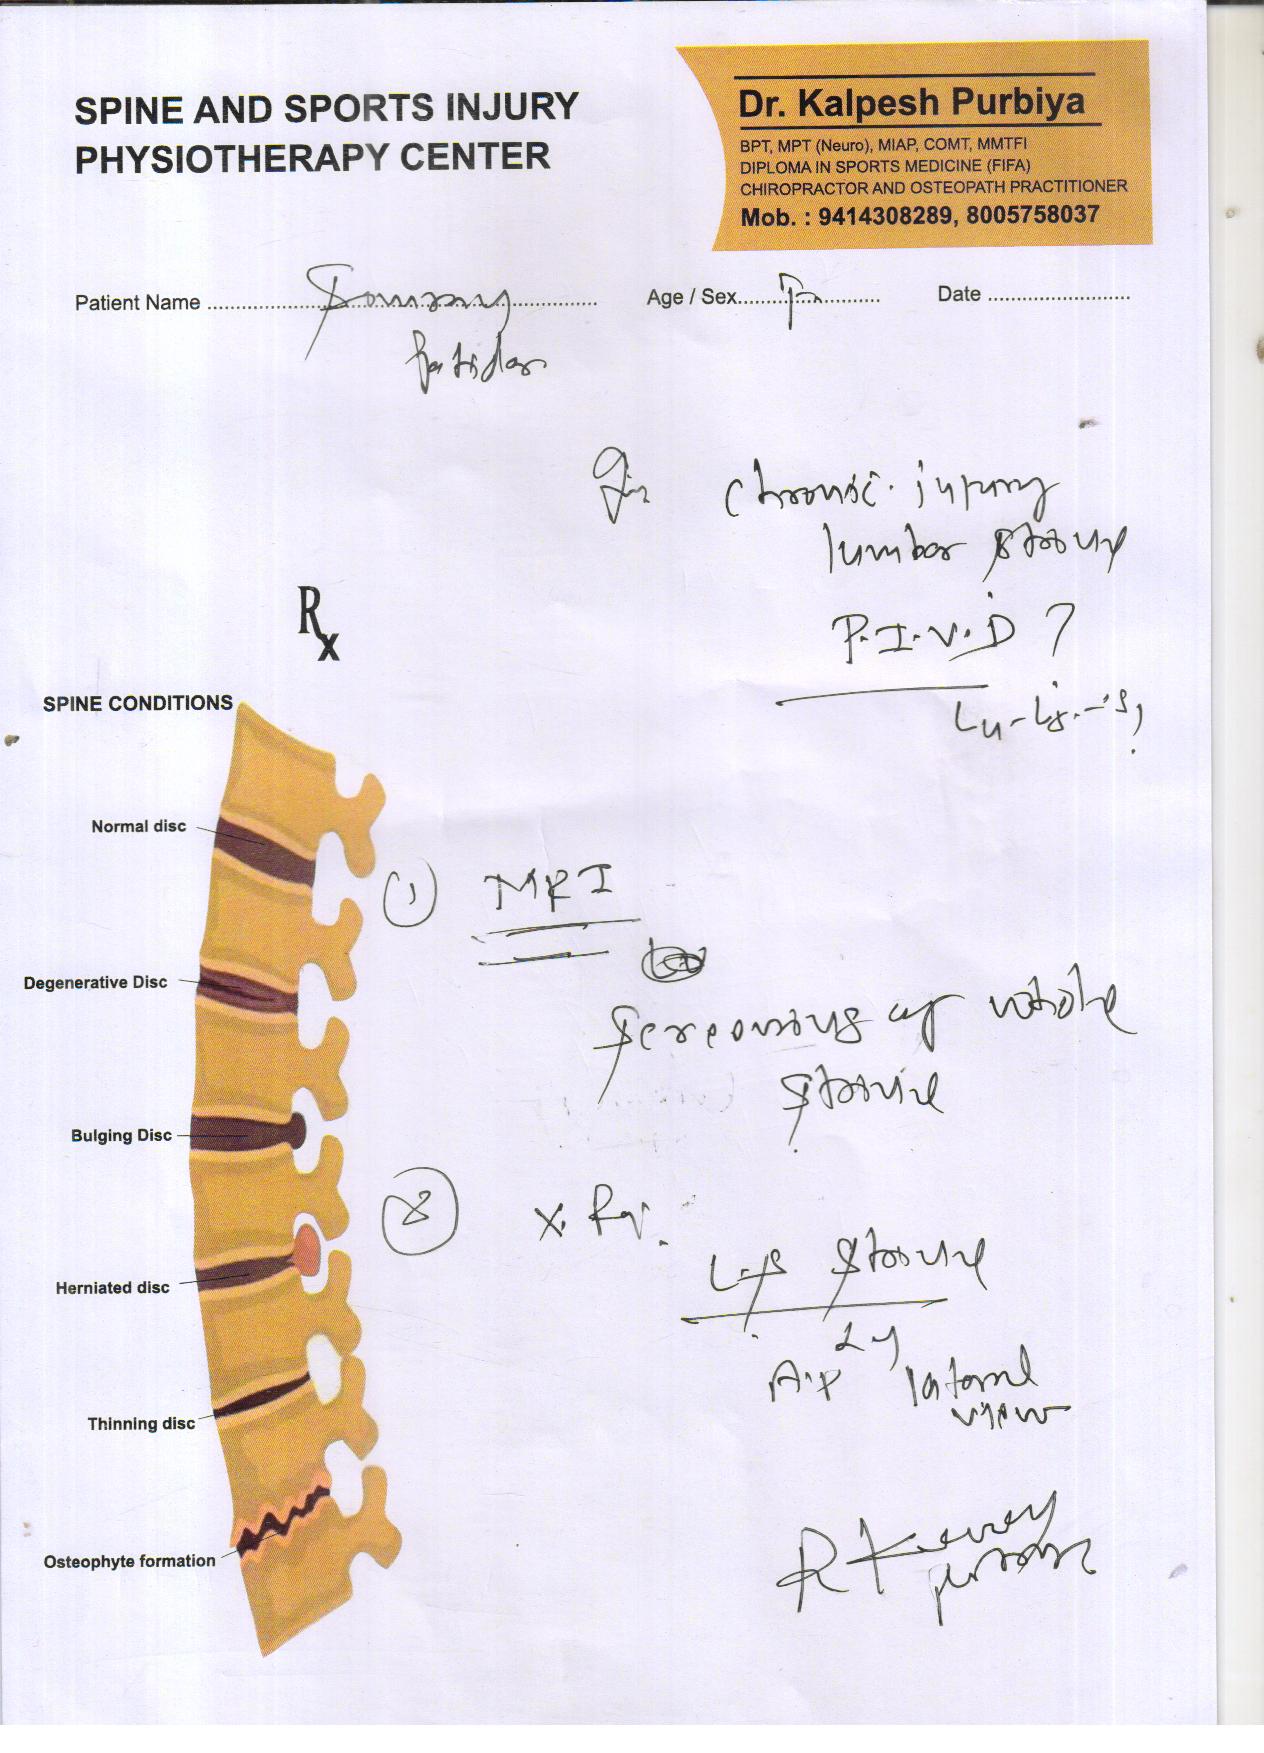 SPINE AND SPORTS INJURY
PHYSIOTHERAPY CENTER
Dr. Kalpesh Purbiya
BPT, MPT (Neuro), MIAP, COMT, MMTFI
DIPLOMA IN SPORTS MEDICINE (FIFA)
CHIROPRACTOR AND OSTEOPATH PRACTITIONER
Mob. : 9414308289, 8005758037
Patient Name
Age / Sex
Date
Patidar
chronic injury
lumbar spine
P.I.V.D ?
L4-L5-S1
Rx
SPINE CONDITIONS
Normal disc
Degenerative Disc
Bulging Disc
Herniated disc
Thinning disc
Osteophyte formation
① MRI
screening of whole
spine
② X. Ray.
L-S spine
A.P lateral
view